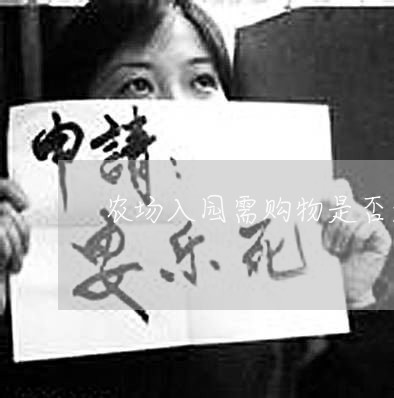 申請：
农场入园需购物是否
要乐死